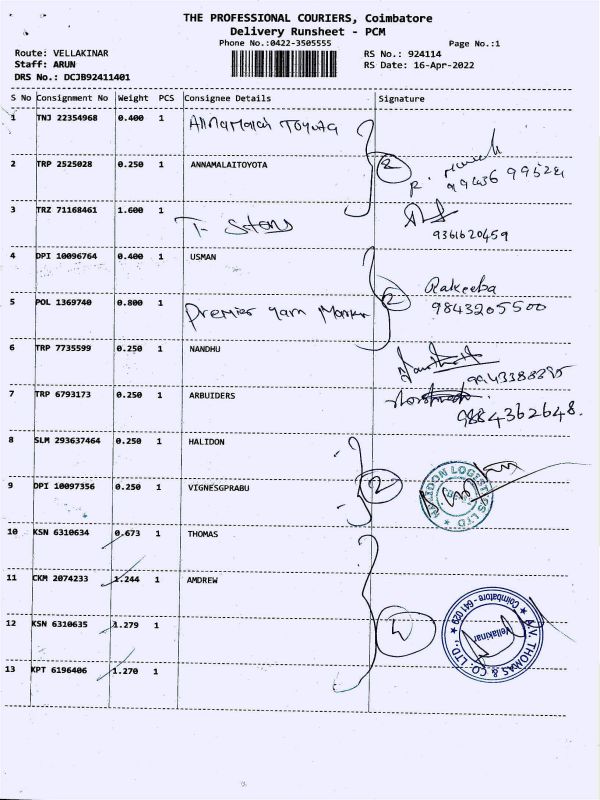 THE PROFESSIONAL COURIERS, Coimbatore
Delivery Runsheet - PCM
Phone No.:0422-3505555
Page No.:1
Route: VELLAKINAR
RS No.: 924114
Staff: ARUN
RS Date: 16-Apr-2022
DRS No.: DCJB92411401
S No Consignment No Weight PCS Consignee Details Signature
1 TNJ 22354968 0.400 1 Annamalai Toyota
2 TRP 2525028 0.250 1 ANNAMALAITOYOTA 2
3 TRZ 71168461 1.600 1
9361620459
4 DPI 10096764 0.400 1 USMAN
Rakeeba
5 POL 1369740 0.800 1 Premier yarn 2 9843205500
6 TRP 7735599 0.250 1 NANDHU
9943388395
7 TRP 6793173 0.250 1 ARBUIDERS
9884362648.
8 SLM 293637464 0.250 1 HALIDON
HALIDON LOGISTICS LTD
9 DPI 10097356 0.250 1 VIGNESGPRABU 2
10 KSN 6310634 0.673 1 THOMAS
11 CKM 2074233 1.244 1 AMDREW
12 KSN 6310635 1.279 1
A.V. THOMAS & CO. LTD.,
Vellakinar
Coimbatore - 641 029
13 KPT 6196406 1.270 1